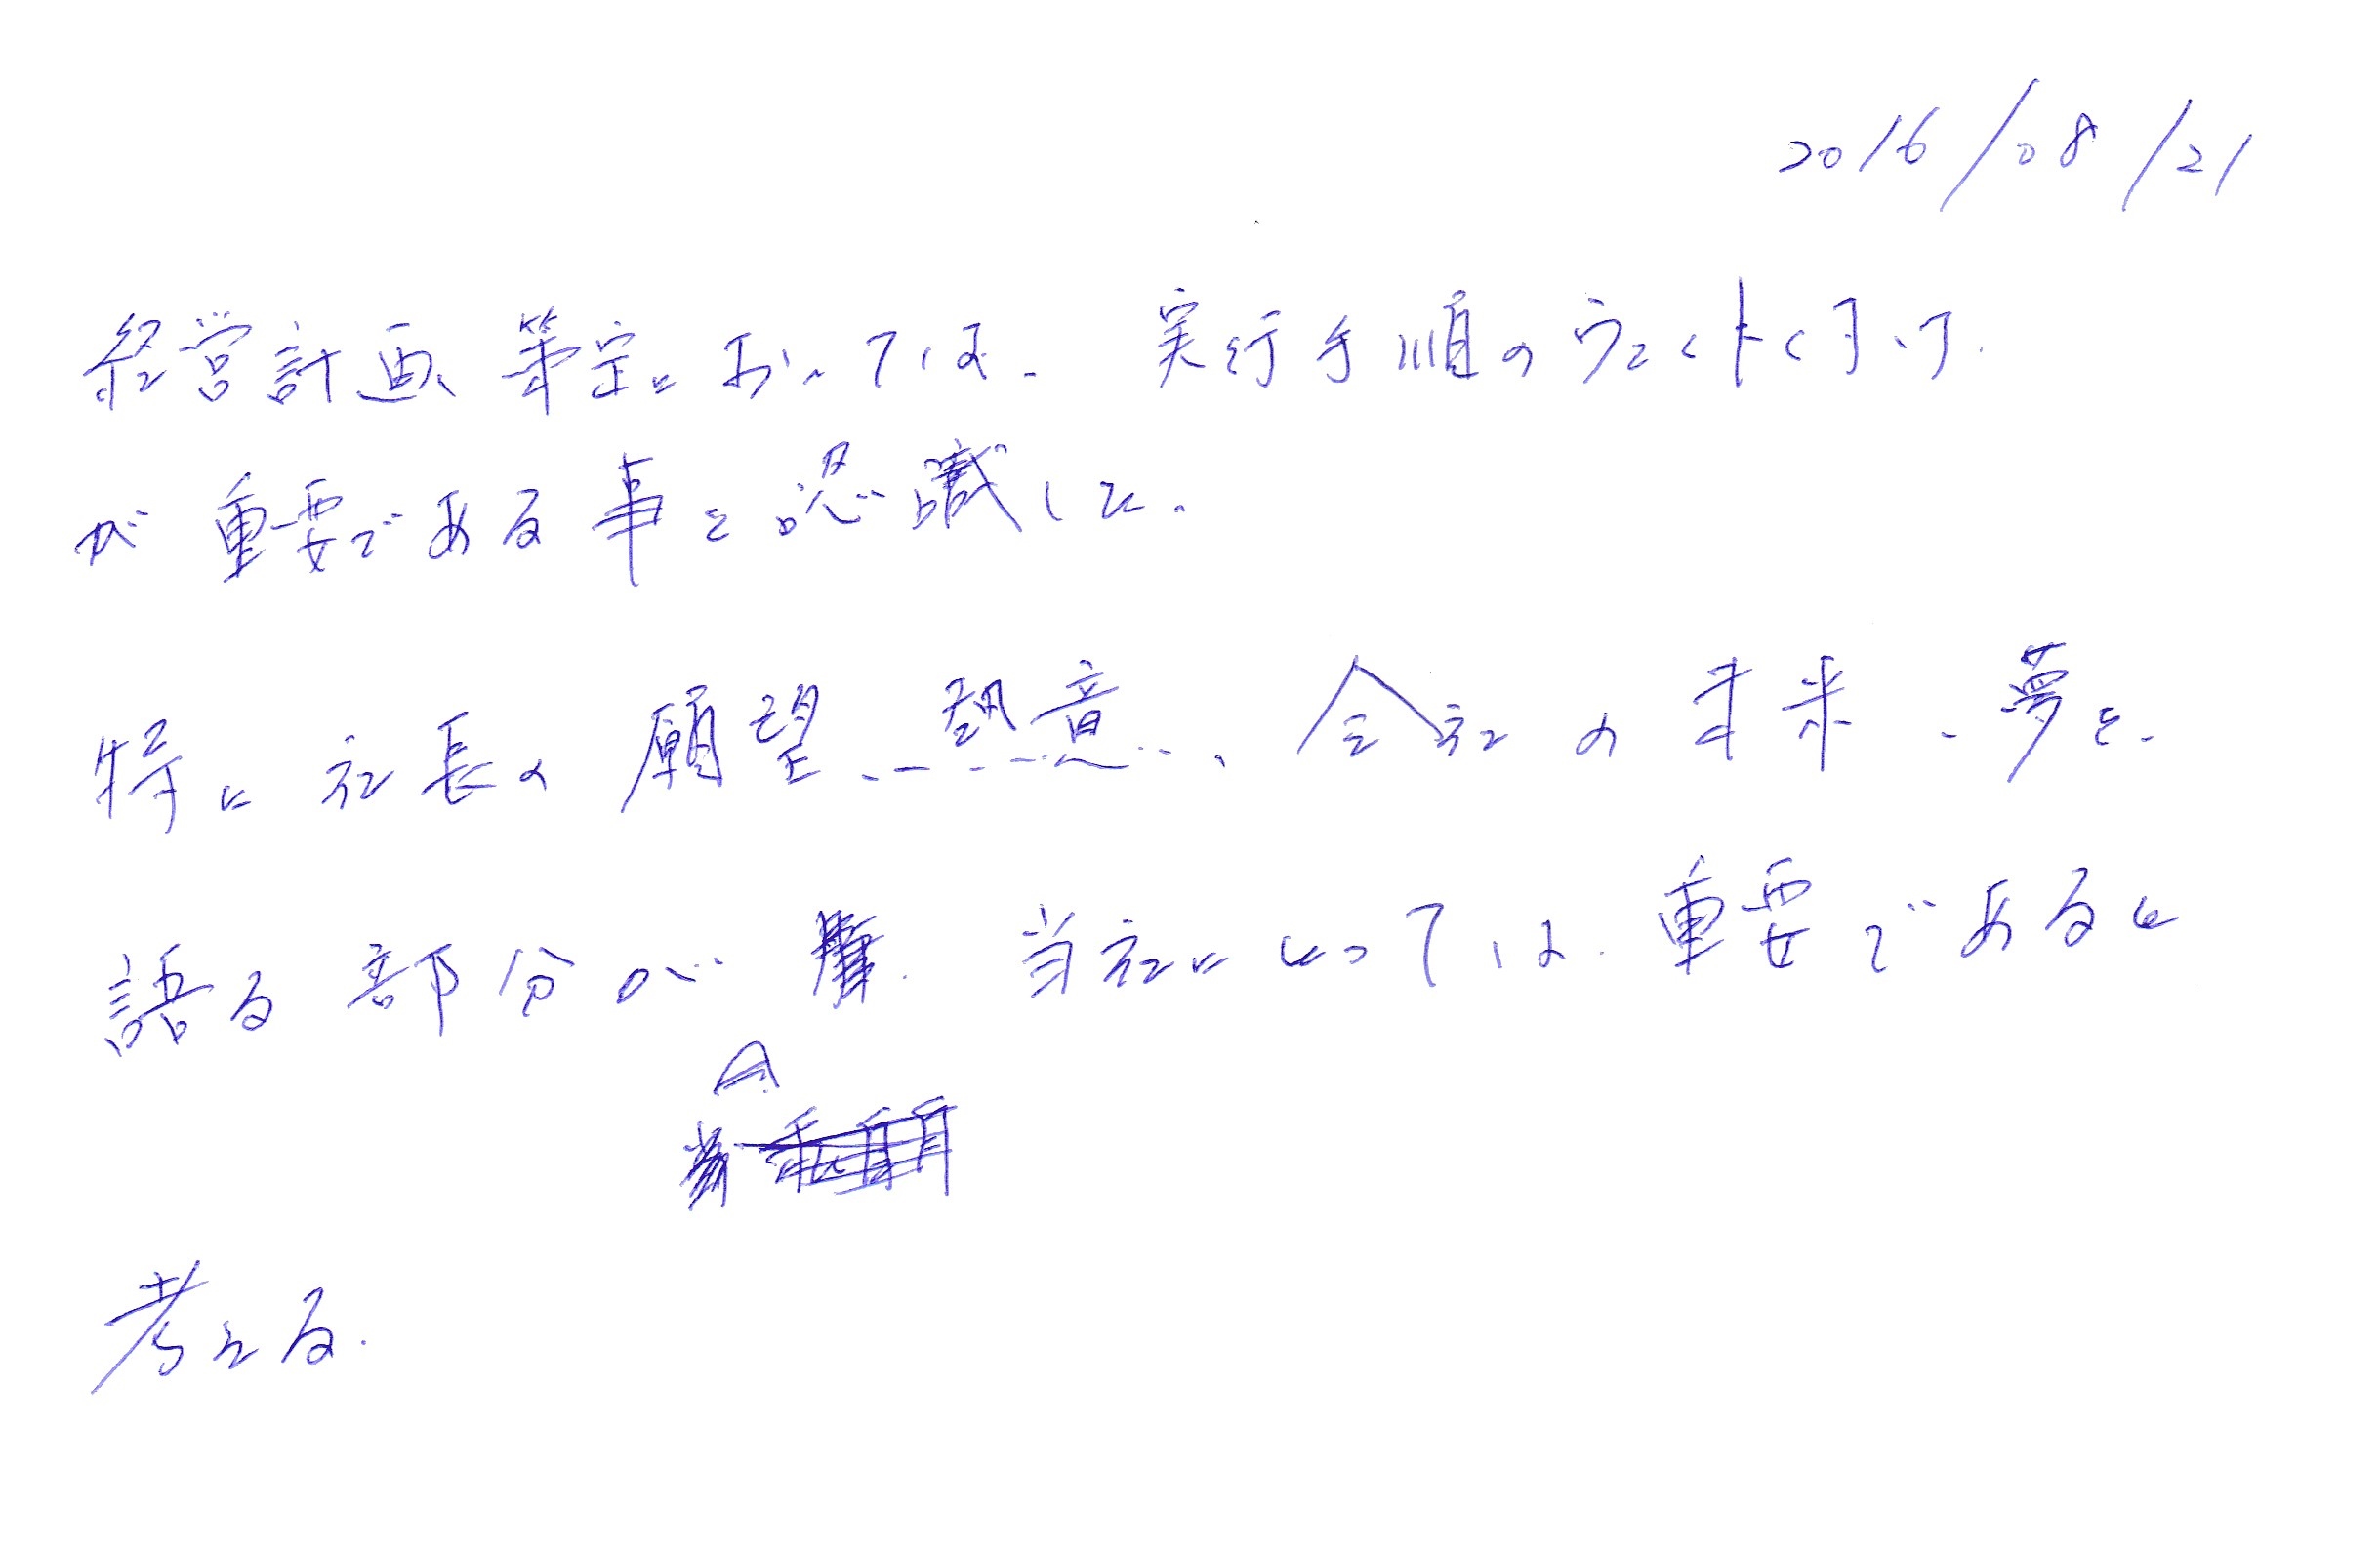 2016/08/21
経営計画、策定においては、実行手順の
が重要である事を認識した。
特に社長の願望、熱意、会社の未来、夢を、
語る部分が 当社にとっては、重要であると
考える。